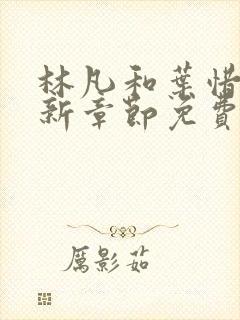 林凡和葉惜
新章節免費
厲影茹